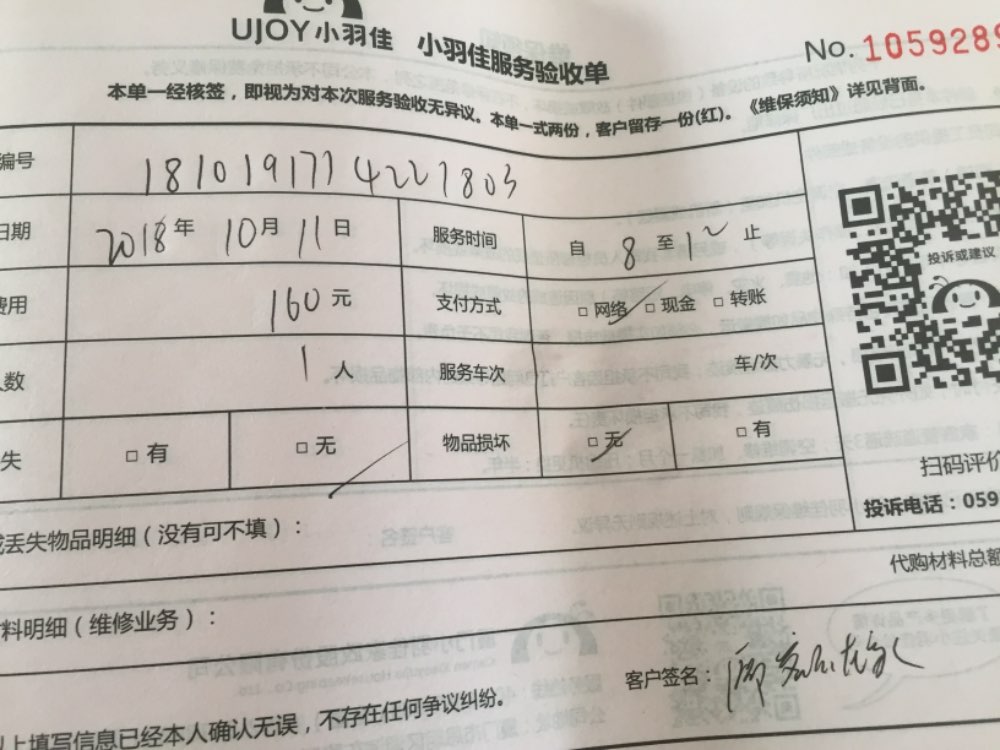 UJOY小羽佳 小羽佳服务验收单 No. 1059289
本单一经核签，即视为对本次服务验收无异议。本单一式两份，客户留存一份(红)。《维保须知》详见背面。
编号 1810191774221803
日期 2018年 10月 11日 服务时间 自 8 至 12 止
费用 160元 支付方式 □ 网络 □ 现金 □ 转账
人数 1 人 服务车次 车/次
失 □ 有 □ 无 物品损坏 □ 无 □ 有
投诉或建议
扫码评价
投诉电话：059
丢失物品明细（没有可不填）：
代购材料总额
料明细（维修业务）：
客户签名：
上填写信息已经本人确认无误，不存在任何争议纠纷。